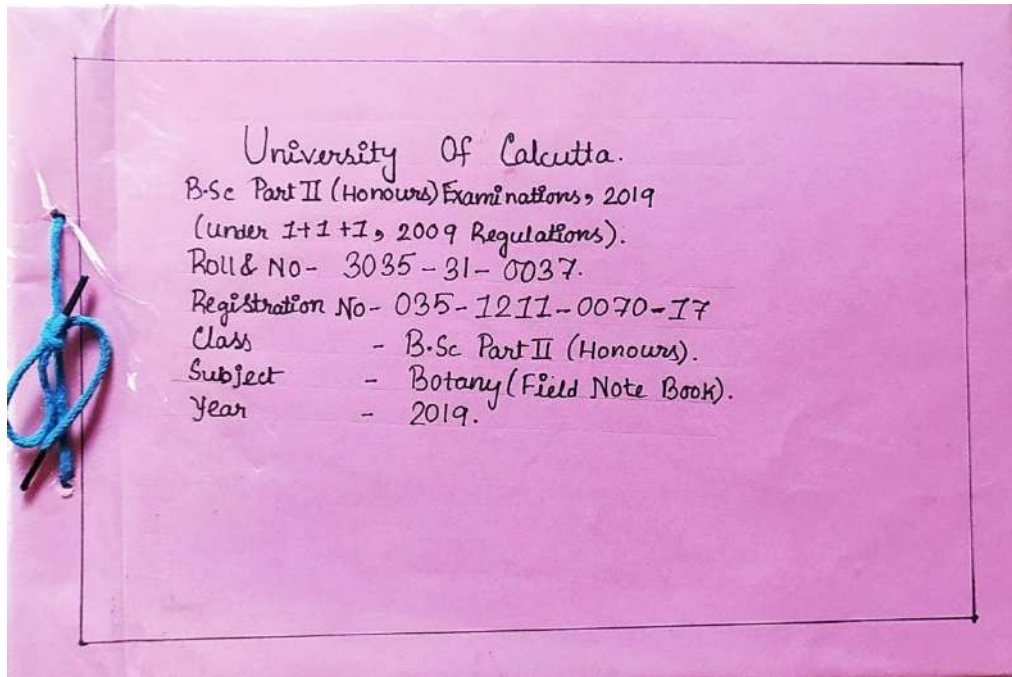 University Of Calcutta.
B.Sc Part II (Honours) Examinations, 2019
(under 1+1+1, 2009 Regulations).
Roll & No- 3035-31-0037.
Registration No- 035-1211-0070-17
Class - B.Sc Part II (Honours).
Subject - Botany (Field Note Book).
Year - 2019.